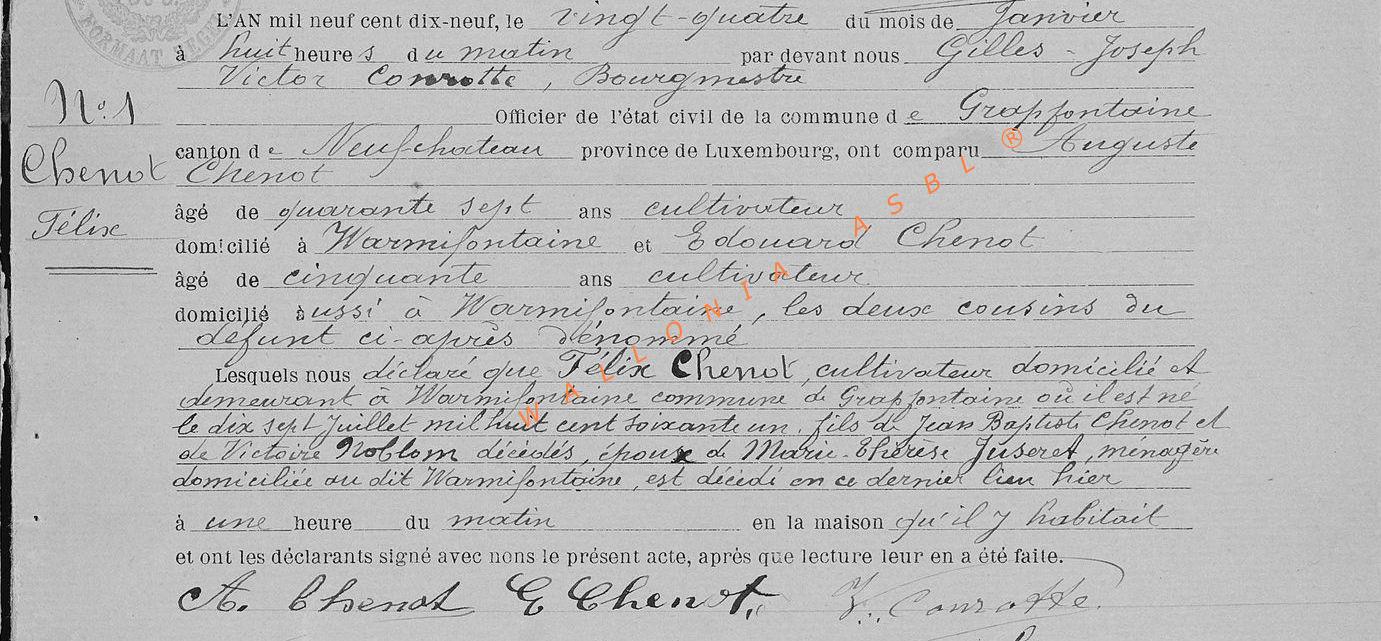 FORMAAT ZEGEL
L'AN mil neuf cent dix-neuf, le vingt-quatre du mois de Janvier
à huit heures du matin par devant nous Gilles-Joseph
Victor Conrotte, Bourgmestre
N° 1
Officier de l'état civil de la commune de Grapfontaine
canton de Neufchateau province de Luxembourg, ont comparu Auguste
Chenot Chenot
Félix
âgé de quarante sept ans cultivateur
domicilié à Warmifontaine et Edouard Chenot
âgé de cinquante ans cultivateur
domicilié aussi à Warmifontaine, les deux cousins du
défunt ci-après dénommé
Lesquels nous déclaré que Félix Chenot, cultivateur domicilié et
demeurant à Warmifontaine commune de Grapfontaine où il est né
le dix sept Juillet mil huit cent soixante un, fils de Jean Baptiste Chenot et
de Victoire Noblom décédés, époux de Marie-Thérèse Juseret, ménagère
domiciliée au dit Warmifontaine, est décédé en ce dernier lieu hier
à une heure du matin en la maison qu'il y habitait
et ont les déclarants signé avec nons le présent acte, après que lecture leur en a été faite.
A. Chenot E Chenot. V. Conrotte.
WALLONIA ASBL ®